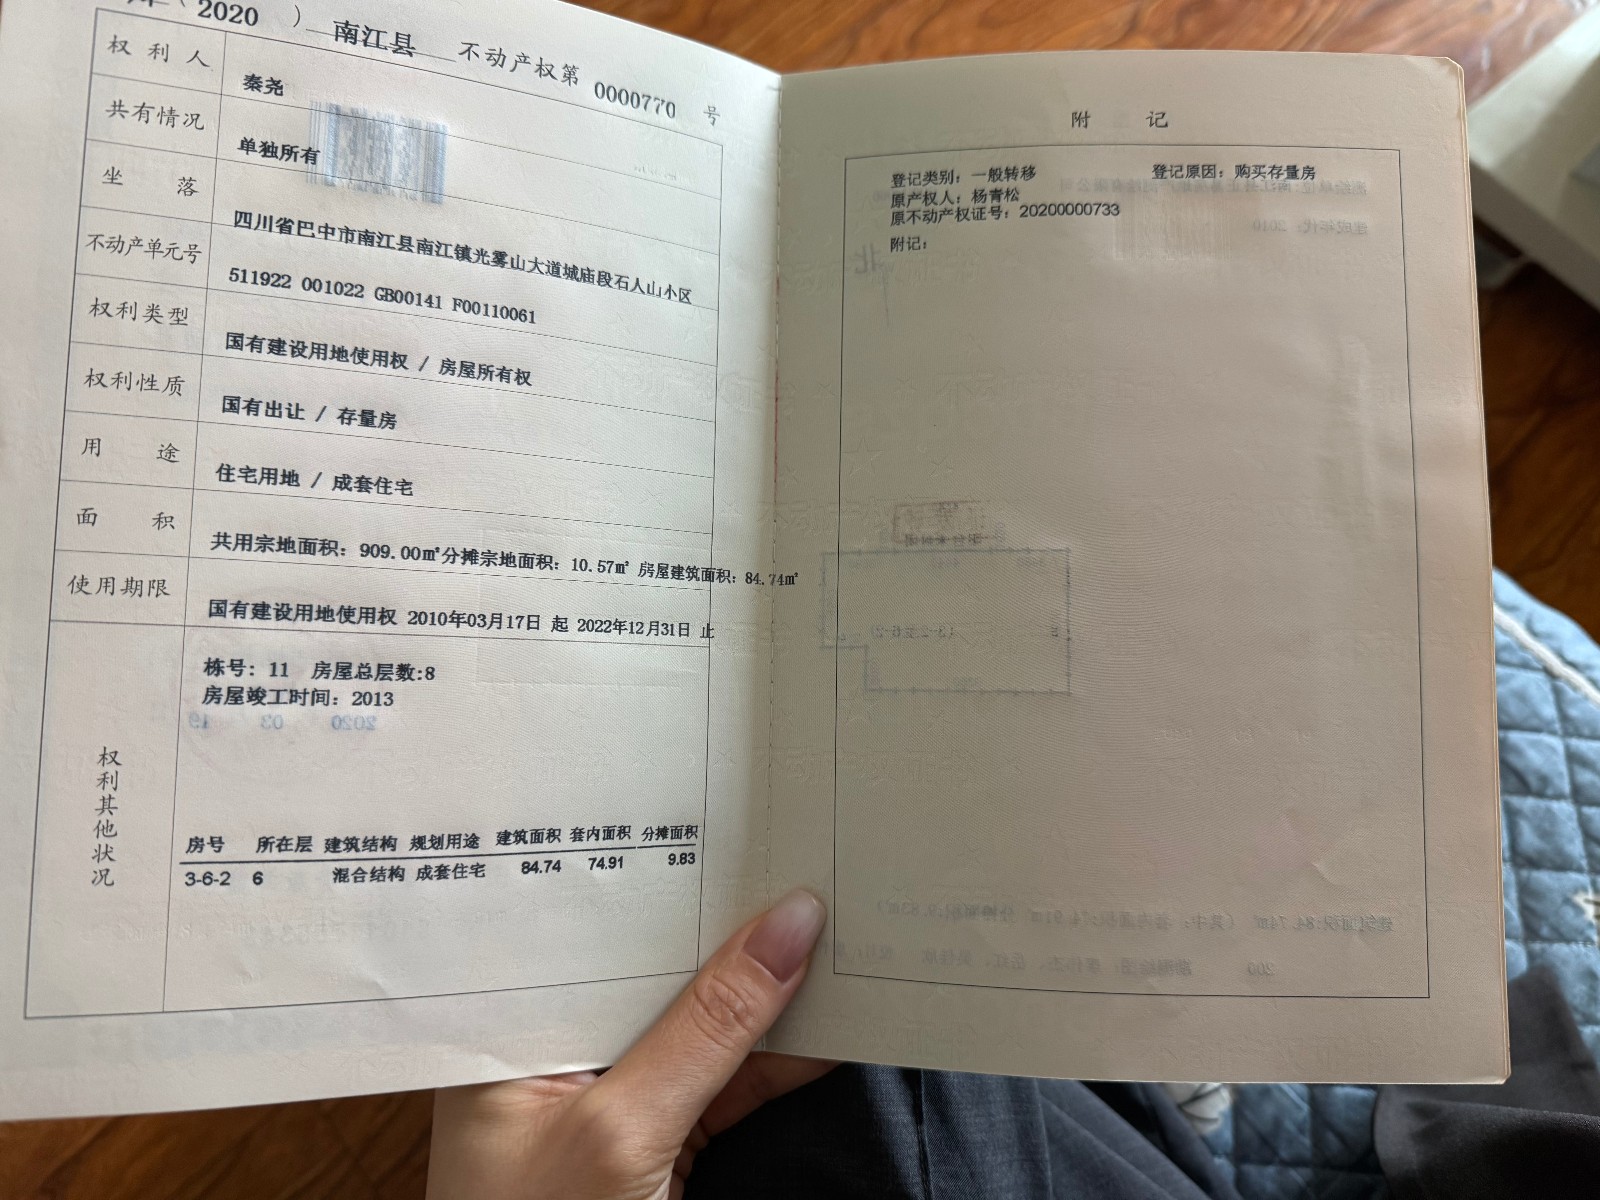 （2020 ） 南江县 不动产权第 0000770 号
权利人 秦尧
共有情况 单独所有
坐落 四川省巴中市南江县南江镇光雾山大道城庙段石人山小区
不动产单元号 511922 001022 GB00141 F00110061
权利类型 国有建设用地使用权 / 房屋所有权
权利性质 国有出让 / 存量房
用途 住宅用地 / 成套住宅
面积 共用宗地面积：909.00㎡分摊宗地面积：10.57㎡ 房屋建筑面积：84.74㎡
使用期限 国有建设用地使用权 2010年03月17日 起 2022年12月31日 止
权利其他状况
栋号：11 房屋总层数:8
房屋竣工时间：2013
2020 03 19
房号 所在层 建筑结构 规划用途 建筑面积 套内面积 分摊面积
3-6-2 6 混合结构 成套住宅 84.74 74.91 9.83
附记
登记类别：一般转移 登记原因：购买存量房
原产权人：杨青松
原不动产权证号：20200000733
附记：